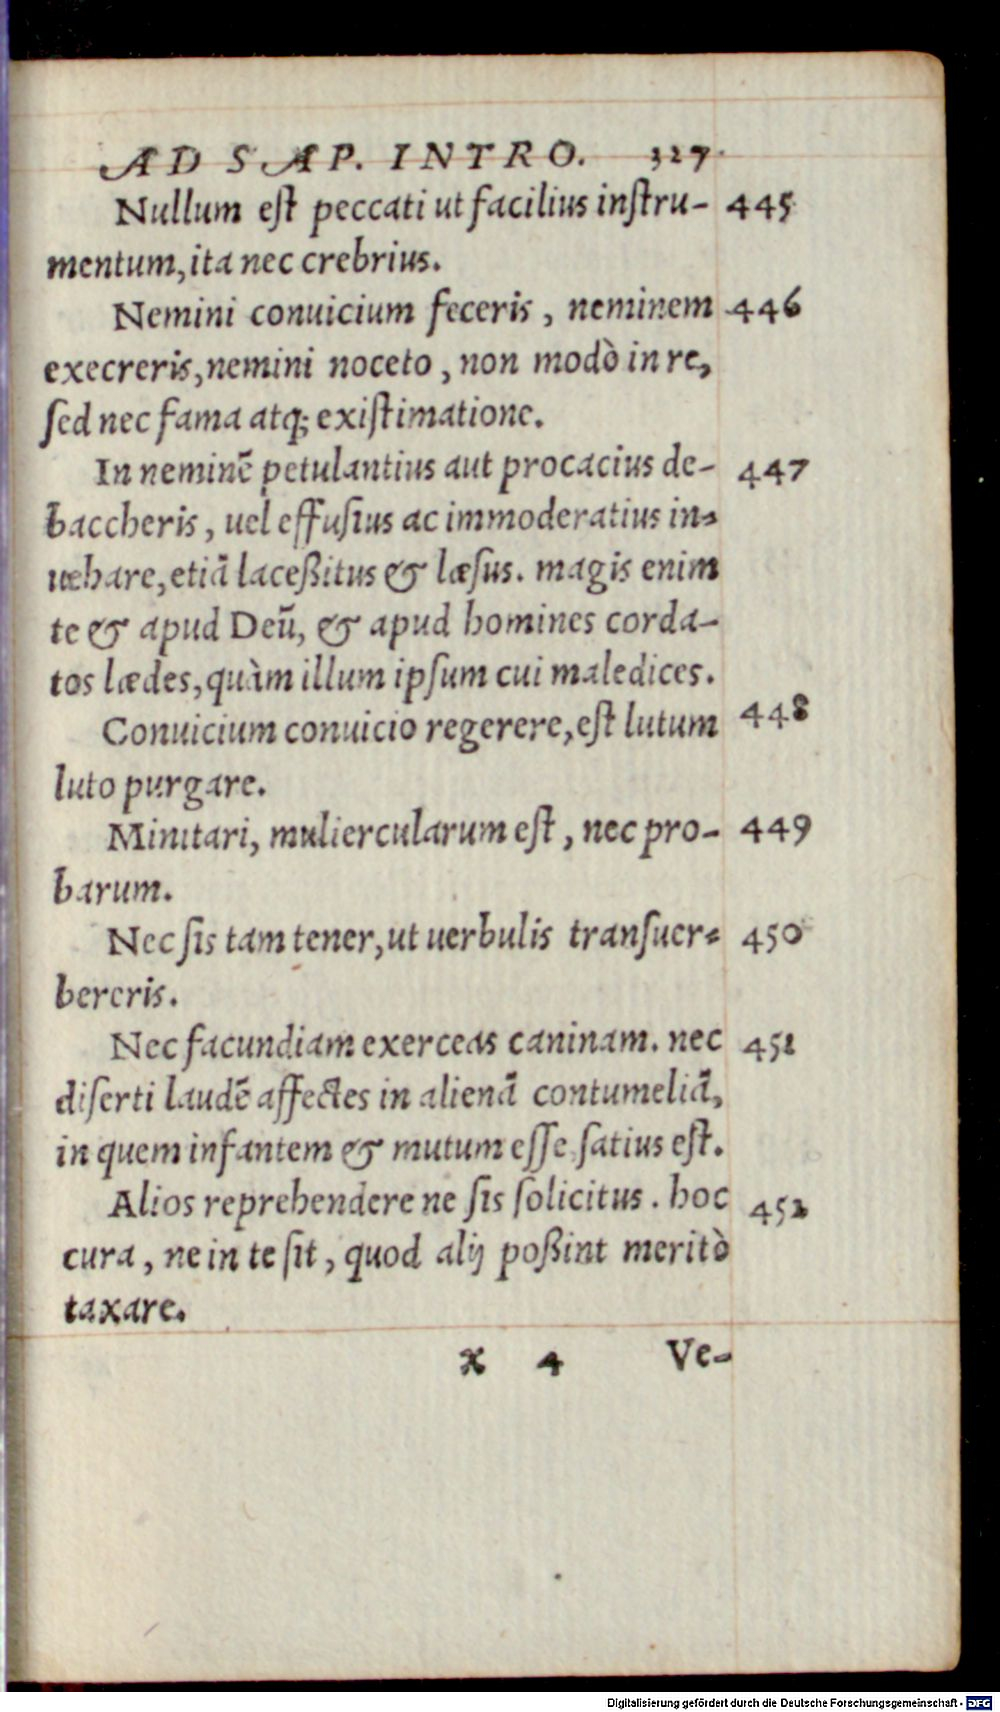 AD SAP. INTRO. 327
Nullum eſt peccati ut facilius inſtru- 445
mentum, ita nec crebrius.
Nemini conuicium feceris, neminem 446
execreris, nemini noceto, non modò in re,
ſed nec fama atq; exiſtimatione.
In neminẽ petulantius aut procacius de- 447
baccheris, uel effuſius ac immoderatius in-
uehare, etiã laceßitus & læſus. magis enim
te & apud Deũ, & apud homines corda-
tos lædes, quàm illum ipſum cui maledices.
Conuicium conuicio regerere, eſt lutum 448
luto purgare.
Minitari, muliercularum eſt, nec pro- 449
barum.
Nec ſis tam tener, ut uerbulis tranſuer- 450
bereris.
Nec facundiam exerceas caninam. nec 451
diſerti laudẽ affectes in alienã contumeliã,
in quem infantem & mutum eſſe ſatius eſt.
Alios reprehendere ne ſis ſolicitus. hoc 452
cura, ne in te ſit, quod alij poßint meritò
taxare.
x 4 Ve-
Digitalisierung gefördert durch die Deutsche Forschungsgemeinschaft - DFG